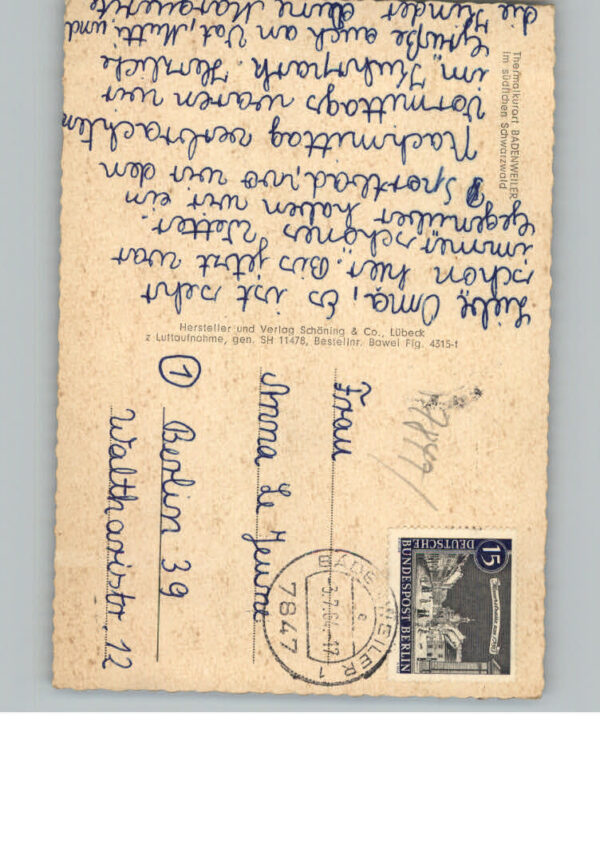 Liebe Oma, Es ist sehr
schön hier. Bis jetzt war
immer schönes Wetter.
Gegenüber haben wir ein
Sportbad, wo wir den
Nachmittag verbrachten
Vormittags waren wir
im Kurpark. Herzliche
Grüße auch an Vat, Mutti und
die Kinder Deine Margarete
Thermalkurort BADENWEILER
im südlichen Schwarzwald
Hersteller und Verlag Schöning & Co., Lübeck
z Luftaufnahme, gen. SH 11478, Bestellnr. Bawei Flg. 4315-f
Frau
Anna Le Jeune
1 Berlin 39
Waltharistr. 12
15
DEUTSCHE
BUNDESPOST BERLIN
BADENWEILER 1
7847